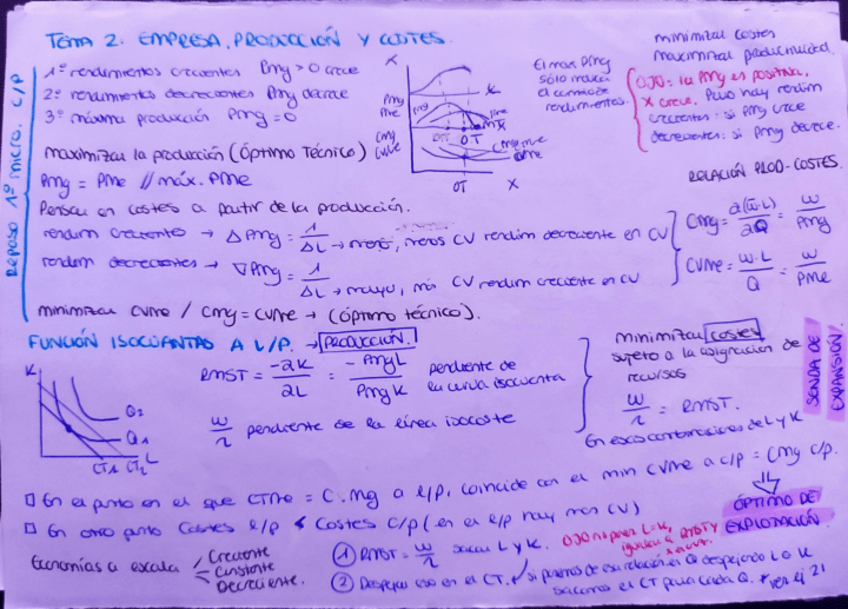 TEMA 2. EMPRESA, PRODUCCIÓN Y COSTES.
REPASO 1º MICRO. C/P
1º rendimientos crecientes Pmg > 0 crece
2º rendimientos decrecientes Pmg decrece
3º máxima producción Pmg = 0
maximizar la producción (Óptimo Técnico)
Pmg = Pme // máx. Pme
X
Pmg
Pme
Cmg
CVMe
OT
X
El max Pmg
sólo indica
el cambio de
rendimientos.
minimizar costes
maximizar productividad.
OJO: la Pmg es positiva,
X crece. Pero hay rendim
crecientes: si Pmg crece
decrecientes: si Pmg decrece.
RELACIÓN PROD-COSTES.
Pensar en costes a partir de la producción.
rendim creciente → Δ Pmg = 1/ΔL → menos, menos CV rendim decreciente en CV
rendim decrecientes → ∇ Pmg = 1/ΔL → mayor, más CV rendim creciente en CV
Cmg = ∂(w·L)/∂Q = w/Pmg
CVMe = w·L/Q = w/PMe
minimizar CVMe / Cmg = CVMe → (óptimo técnico).
FUNCIÓN ISOCUANTAS A L/P. → PRODUCCIÓN.
K
Q2
Q1
CT1 CT2 L
RMST = -∂K/∂L = -PmgL/PmgK pendiente de
la curva isocuanta
w/r pendiente de la línea isocoste
minimizar costes
sujeto a la asignación de
recursos
w/r = RMST.
En esas combinaciones de L y K
SENDA DE
EXPANSIÓN.
□ En el punto en el que CTMe = C.Mg a l/p, coincide con el min CVMe a c/p = CMg c/p.
□ En otro punto Costes l/p < Costes c/p (en el l/p hay más CV)
ÓPTIMO DE
EXPLOTACIÓN.
Economías a escala
Creciente
Constante
Decreciente.
① RMST = w/r sacar L y K.
② Despejar eso en el CT. si partimos de esa relación en Q despejando L o K
sacamos el CT para cada Q. * ver ej 21